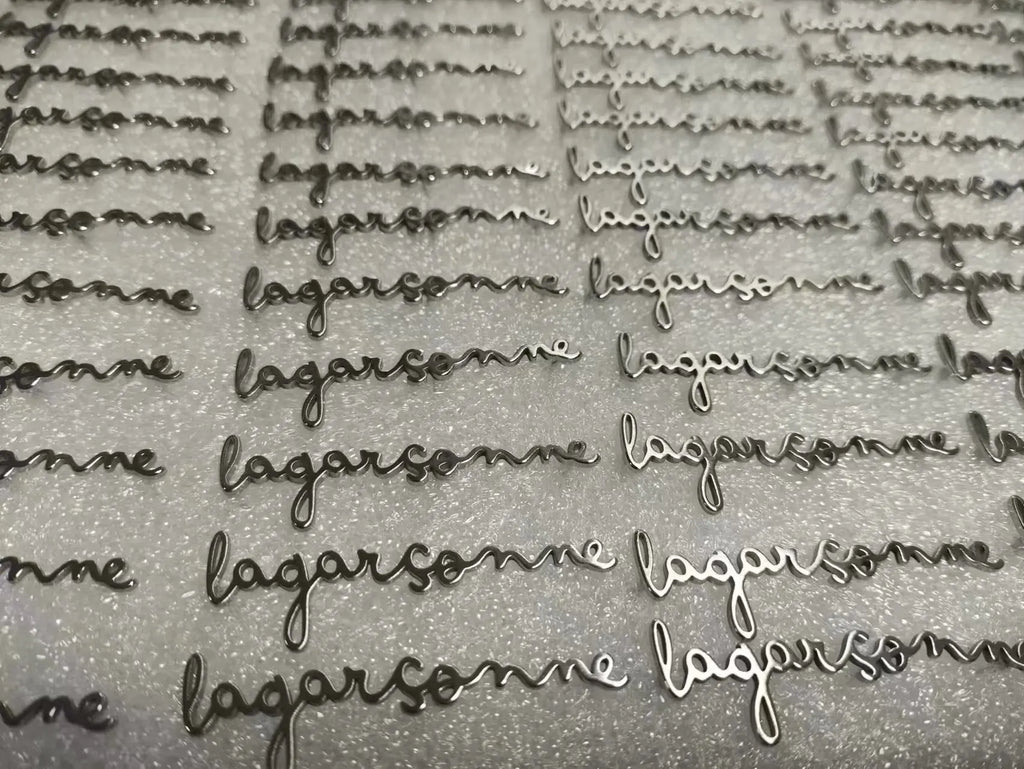 lagarçonne
lagarçonne lagarçonne lagarçonne lagarçonne
lagarçonne lagarçonne lagarçonne lagarçonne
garçonne lagarçonne lagarçonne lagarçonne
arçonne lagarçonne lagarçonne lagarçonne
arçonne lagarçonne lagarçonne lagarçon
rçonne lagarçonne lagarçonne lagar
çonne lagarçonne lagarçonne lagar
onne lagarçonne lagarçonne la
nne lagarçonne lagarçonne
nne lagarçonne lagarçonne